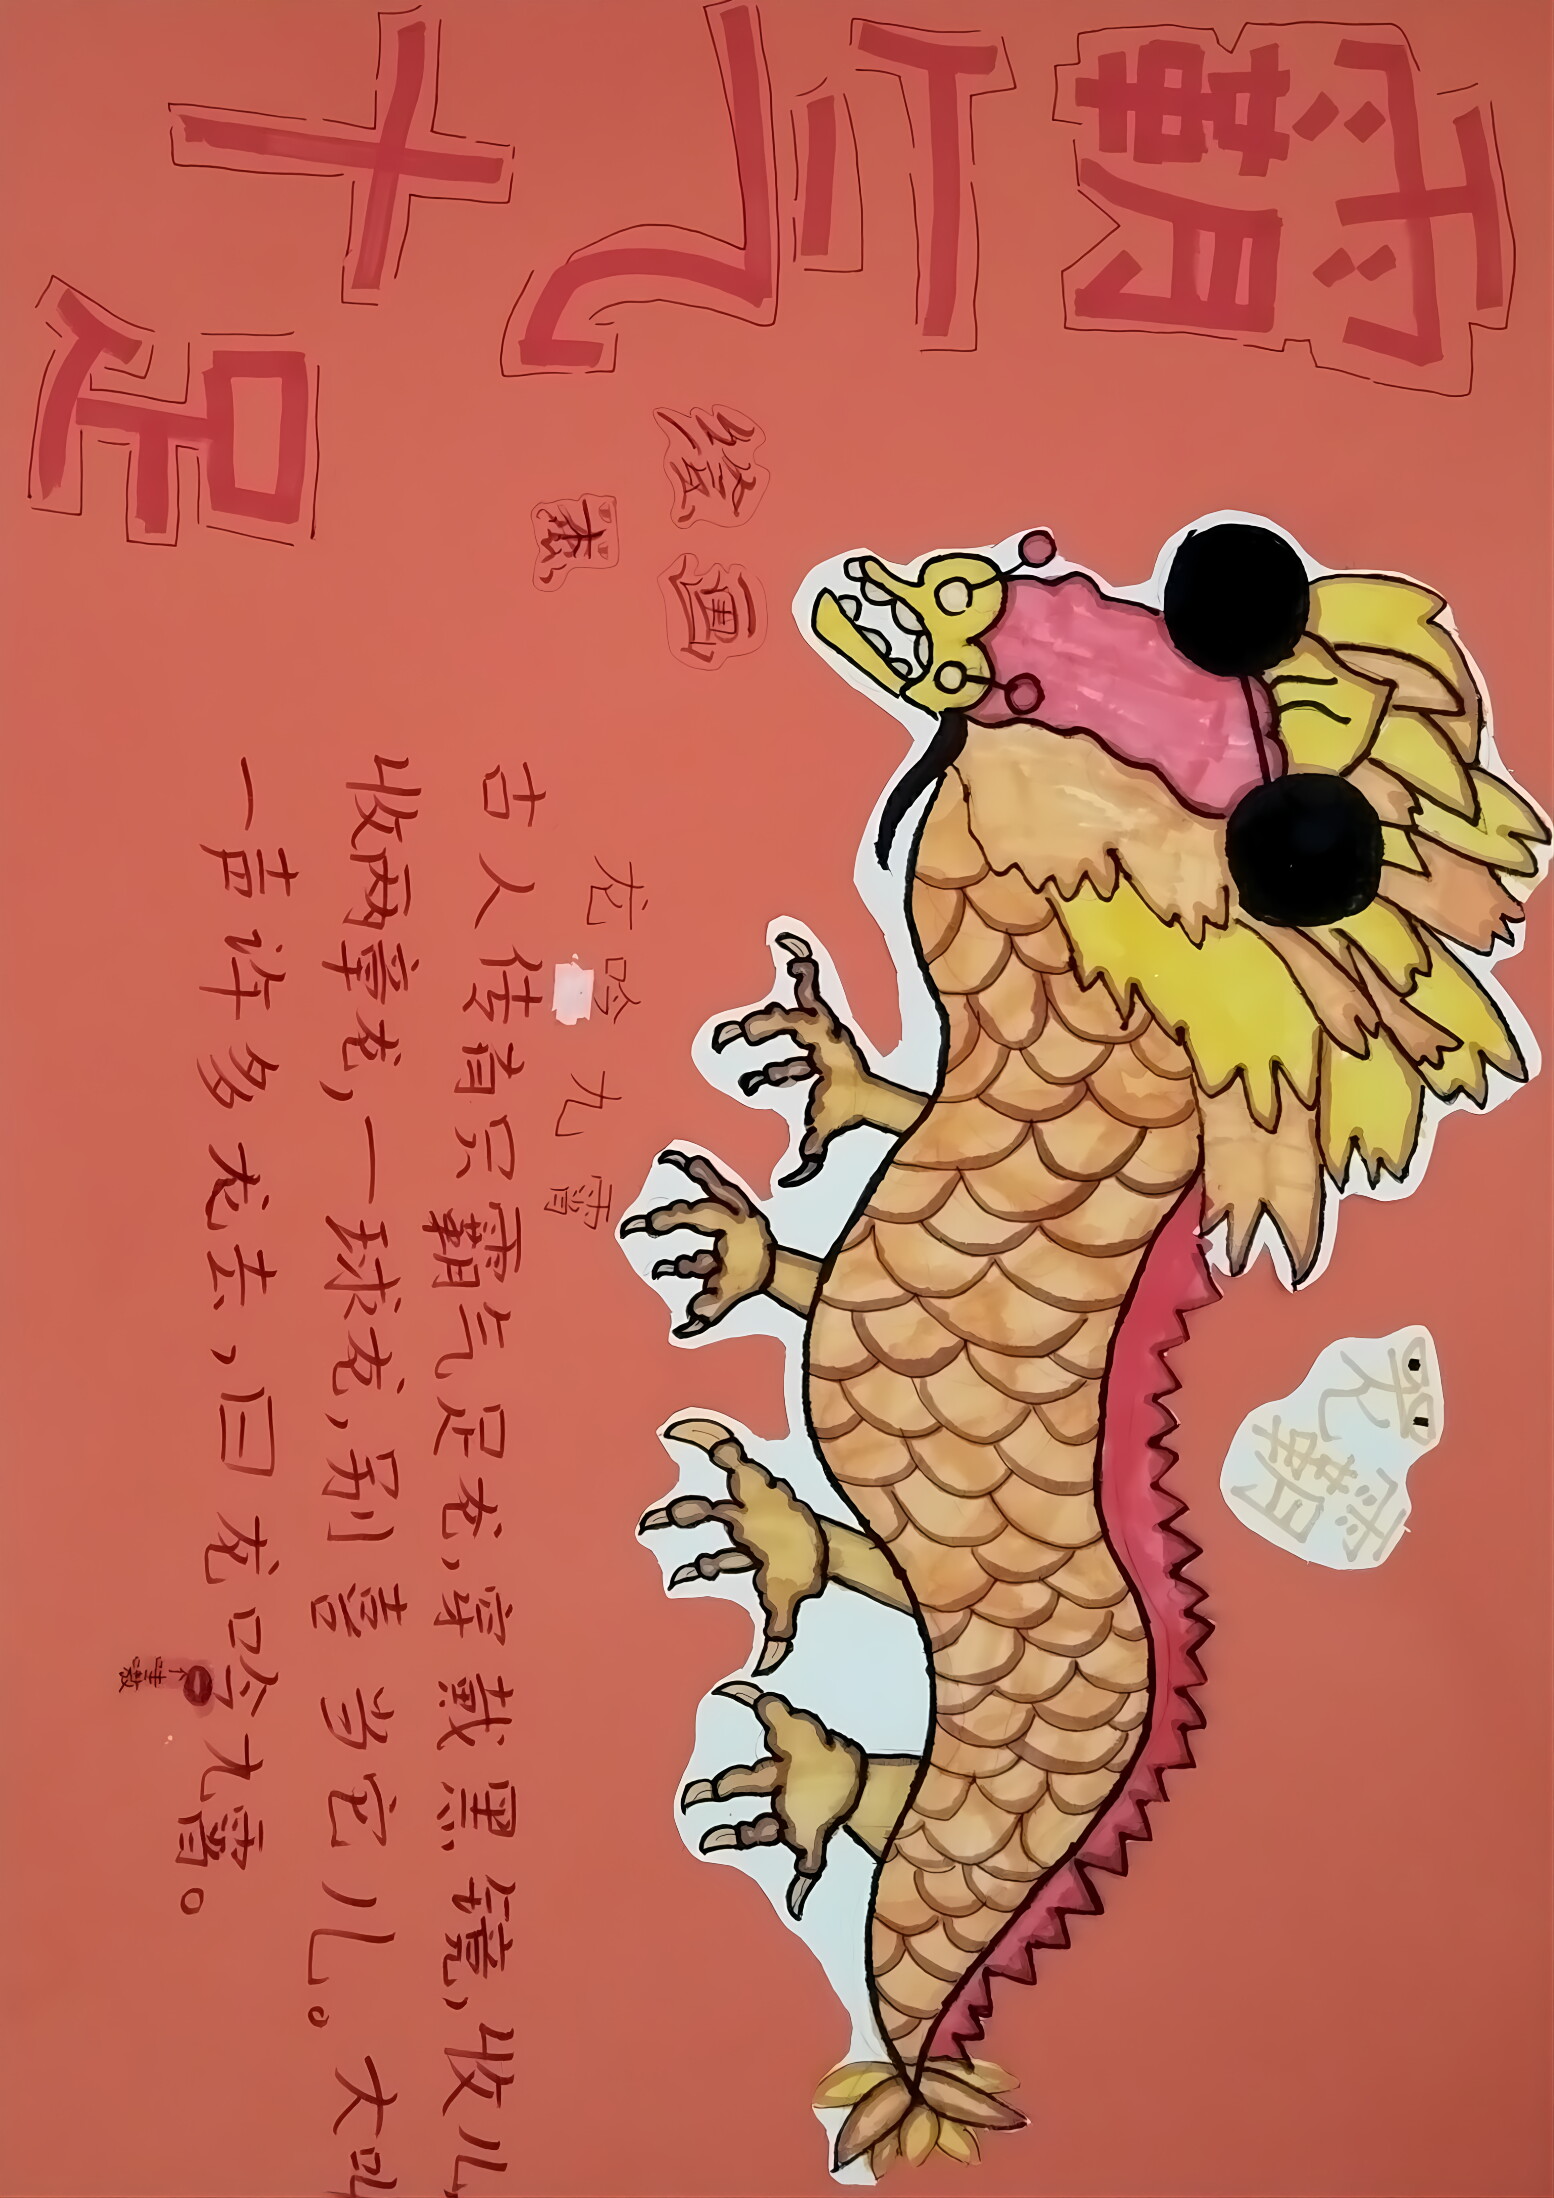 霸气十足
绘画
龙吟九霄
古人传有只霸气足龙,穿戴黑镜,收儿,
收两章龙,一球龙,别喜当它儿。大叫
一声许多龙去,回龙吟九霄。
霸